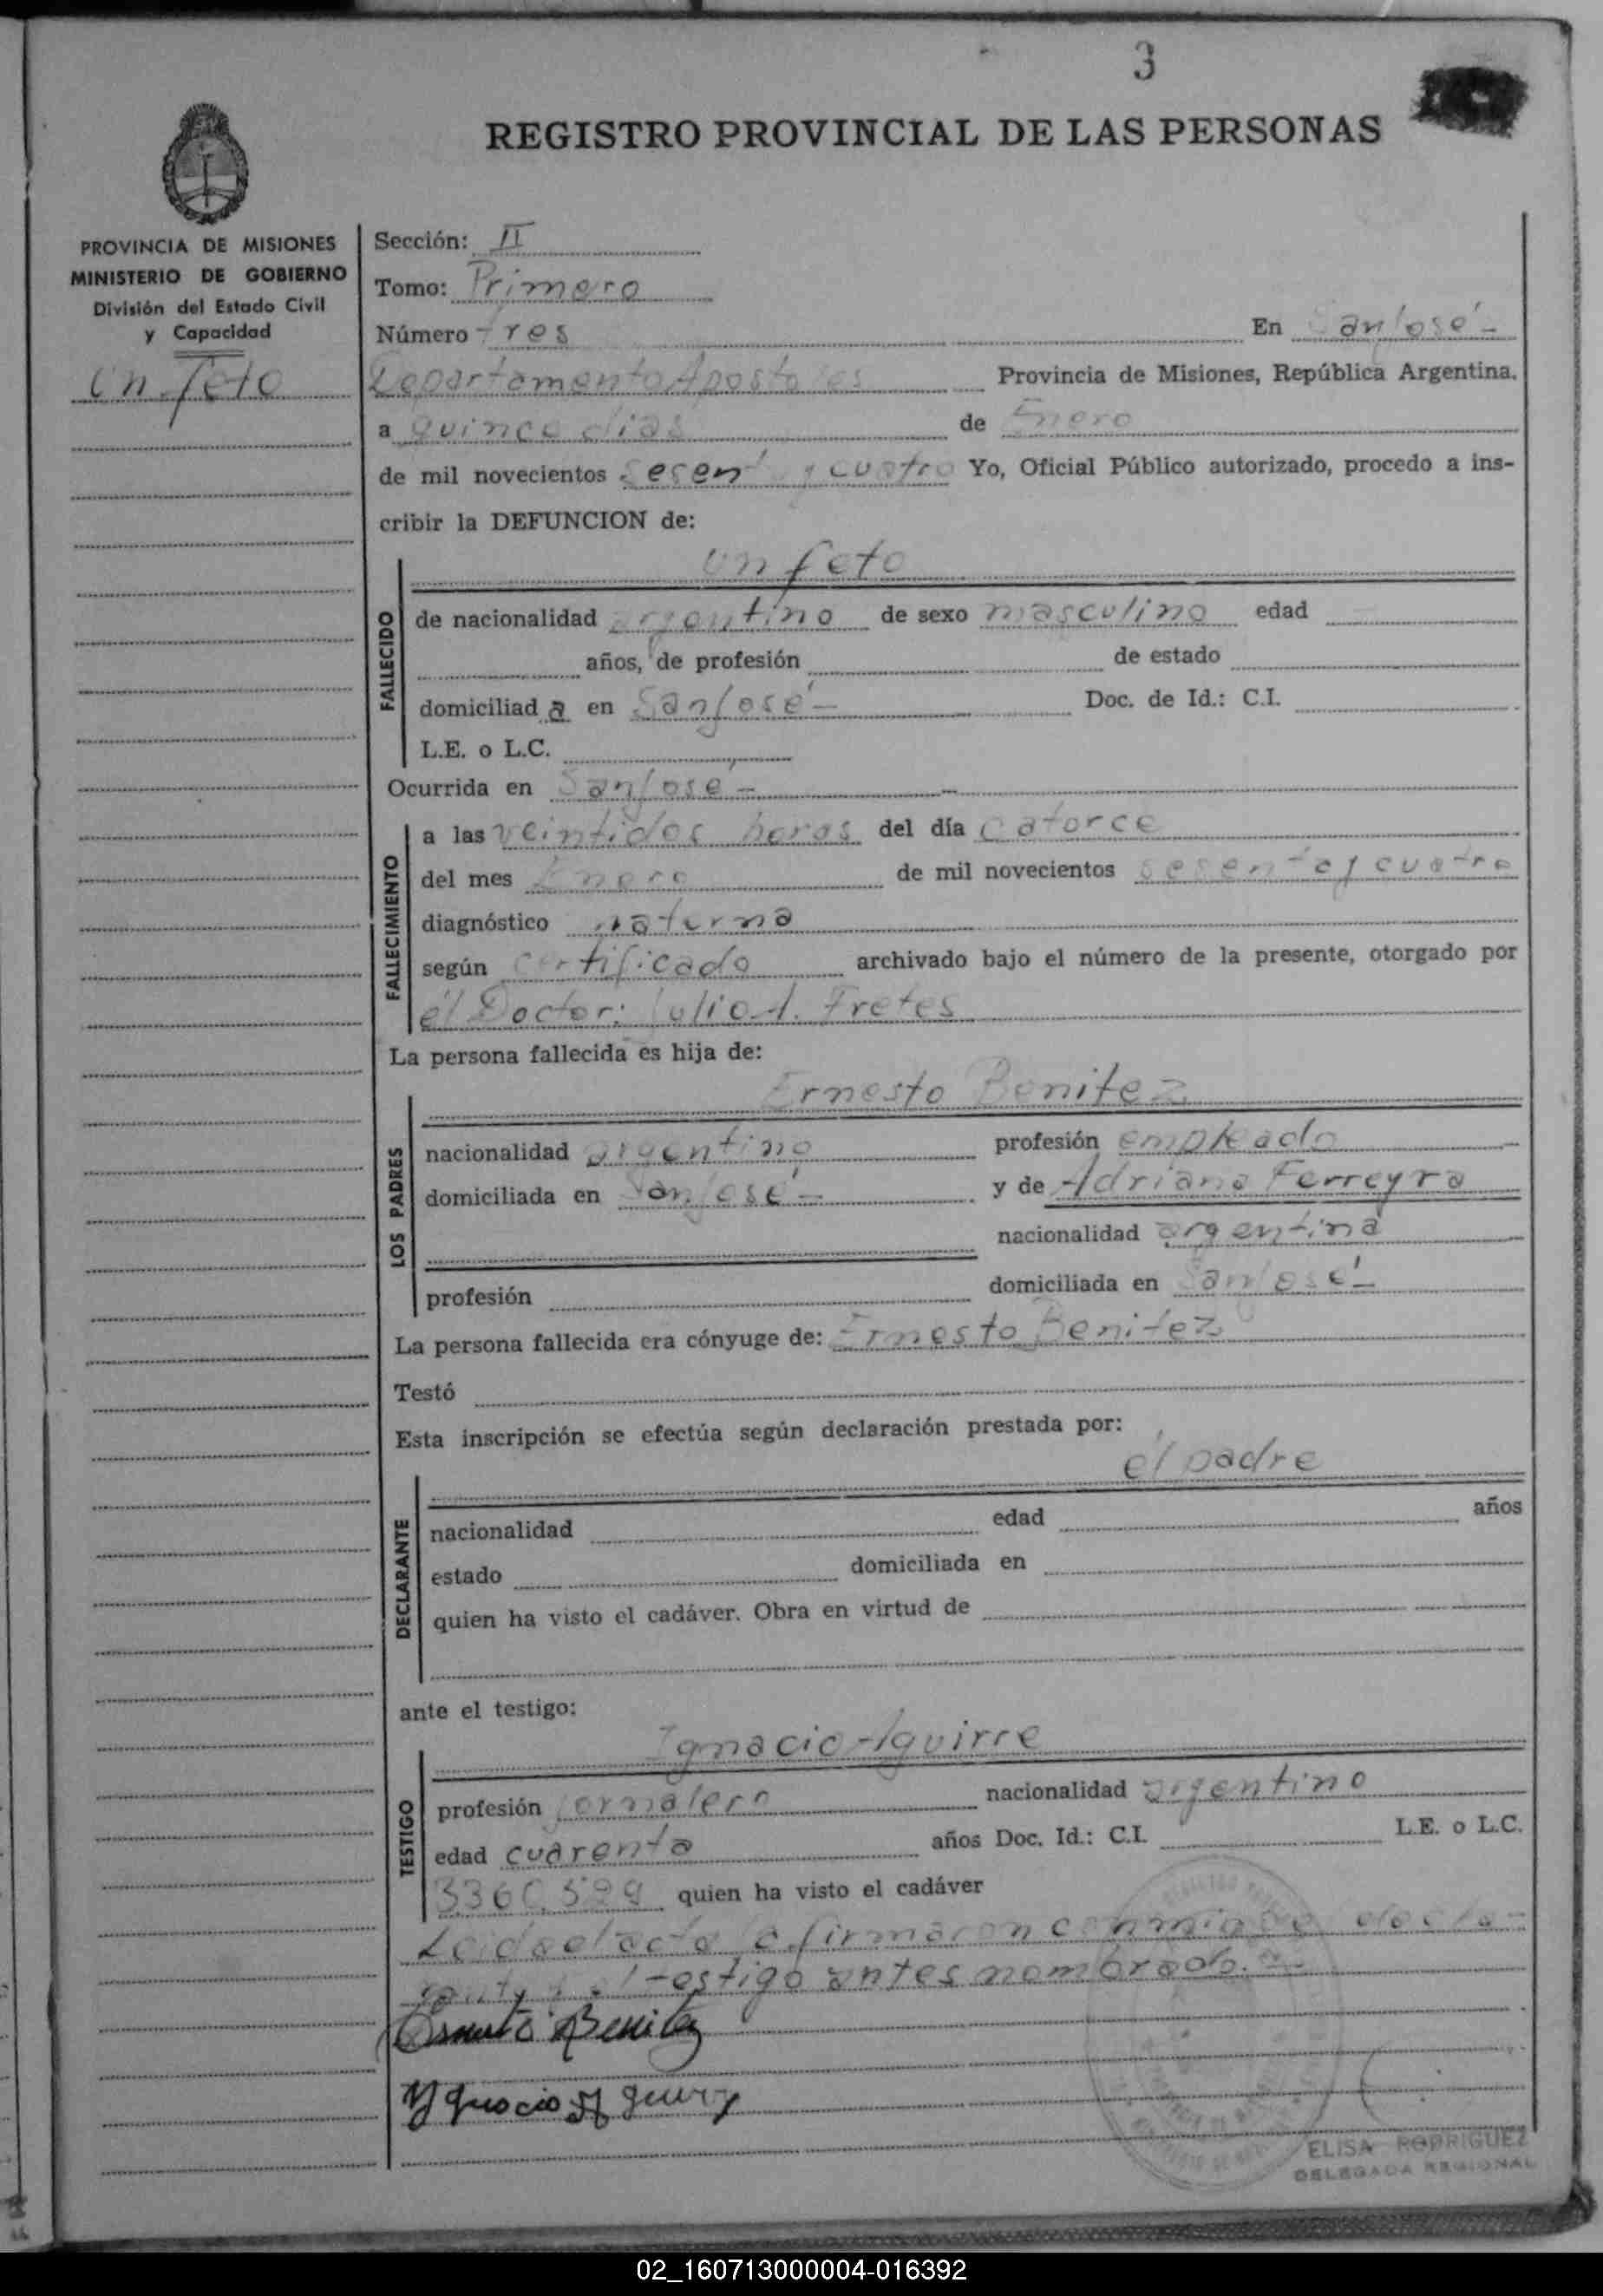 3
REGISTRO PROVINCIAL DE LAS PERSONAS
PROVINCIA DE MISIONES
MINISTERIO DE GOBIERNO
División del Estado Civil
y Capacidad
Un feto
Sección: II
Tomo: Primero
Número tres En San José -
Departamento Apostoles Provincia de Misiones, República Argentina.
a quince dias de Enero
de mil novecientos sesenta y cuatro Yo, Oficial Público autorizado, procedo a ins-
cribir la DEFUNCION de:
un feto
FALLECIDO
de nacionalidad argentino de sexo masculino edad
años, de profesión de estado
domiciliad a en San José - Doc. de Id.: C.I.
L.E. o L.C.
Ocurrida en San José -
FALLECIMIENTO
a las veintidos horas del día catorce
del mes Enero de mil novecientos sesenta y cuatro
diagnóstico materna
según certificado archivado bajo el número de la presente, otorgado por
él Doctor: Julio A. Fretes
La persona fallecida es hija de:
Ernesto Benitez
LOS PADRES
nacionalidad argentino profesión empleado
domiciliada en San José - y de Adriana Ferreyra
nacionalidad argentina
profesión domiciliada en San José -
La persona fallecida era cónyuge de: Ernesto Benitez
Testó
Esta inscripción se efectúa según declaración prestada por:
él padre
DECLARANTE
nacionalidad edad años
estado domiciliada en
quien ha visto el cadáver. Obra en virtud de
ante el testigo:
Ignacio Aguirre
TESTIGO
profesión jornalero nacionalidad argentino
edad cuarenta años Doc. Id.: C.I. L.E. o L.C.
quien ha visto el cadáver
Leida el acta la firmaron conmigo el decla-
rante y el testigo antes nombrado. -
Ernesto Benitez
Ygnacio Aguirre
ELISA RODRIGUEZ
DELEGADA REGIONAL
02_160713000004-016392